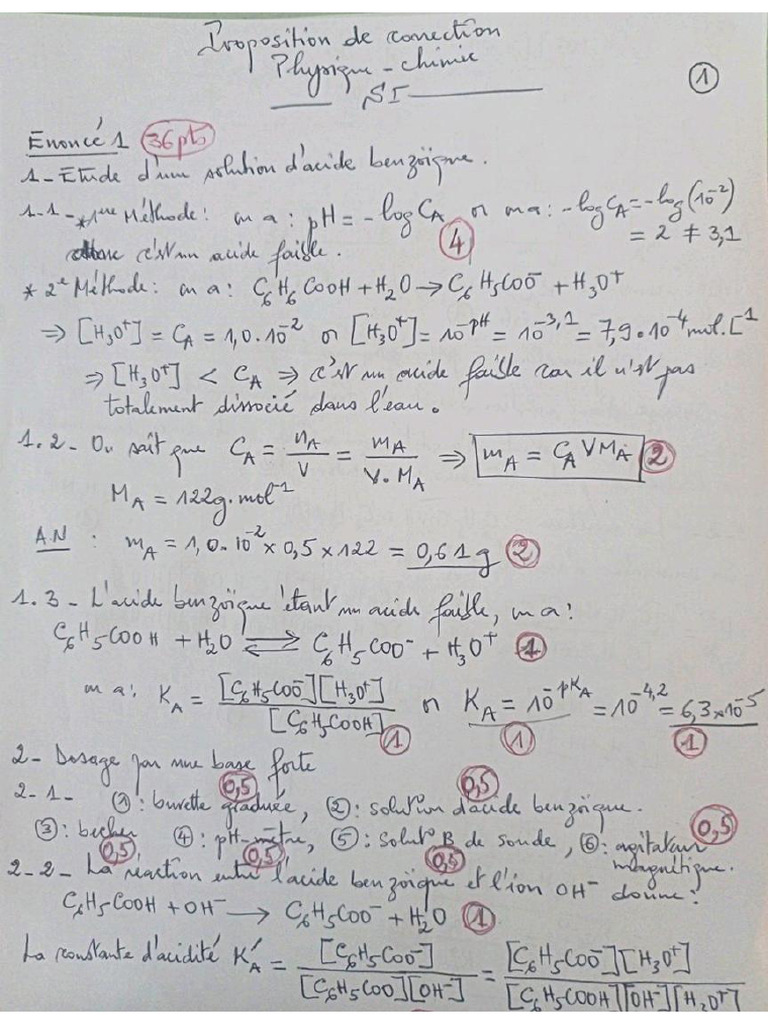 Proposition de correction
Physique - chimie
SI
1
Enoncé 1 36pts
1 - Etude d'une solution d'acide benzoïque.
1-1 - * 1ère Méthode : on a : pH = -log CA or on a : -log CA = -log(10⁻²)
= 2 ≠ 3,1
c'est un acide faible. 4
* 2e Méthode : on a : C6H6COOH + H2O → C6H5COO⁻ + H3O⁺
⇒ [H3O⁺] = CA = 1,0.10⁻² or [H3O⁺] = 10⁻pH = 10⁻³,¹ = 7,9.10⁻⁴ mol.L⁻¹
⇒ [H3O⁺] < CA ⇒ c'est un acide faible car il n'est pas
totalement dissocié dans l'eau.
1.2 - On sait que CA = nA/V = mA/V.MA ⇒ mA = CA V MA 2
MA = 122g.mol⁻¹
A.N : mA = 1,0.10⁻² × 0,5 × 122 = 0,61 g 2
1.3 - L'acide benzoïque étant un acide faible, on a :
C6H5COOH + H2O ⇌ C6H5COO⁻ + H3O⁺ 1
on a : KA = [C6H5COO⁻][H3O⁺]/[C6H5COOH] 1 or KA = 10⁻pKA 1 = 10⁻⁴,² = 6,3×10⁻⁵ 1
2 - Dosage par une base forte
2-1 - ① : burette graduée, 0,5 ② : solution d'acide benzoïque. 0,5
③ : becher 0,5 ④ : pH-mètre, 0,5 ⑤ : Solut° B de soude, 0,5 ⑥ : agitateur 0,5
magnétique.
2-2 - La réaction entre l'acide benzoïque et l'ion OH⁻ donne :
C6H5COOH + OH⁻ → C6H5COO⁻ + H2O 1
La constante d'acidité K'A = [C6H5COO⁻]/[C6H5COO][OH⁻] = [C6H5COO⁻][H3O⁺]/[C6H5COOH][OH⁻][H3O⁺]